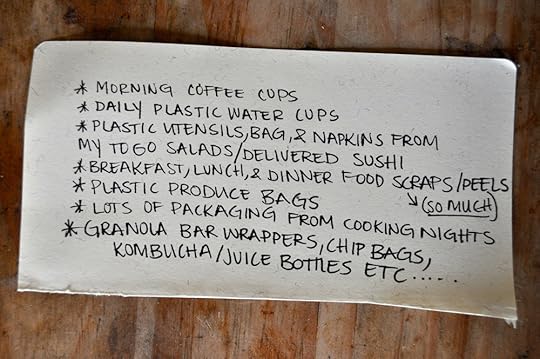 * MORNING COFFEE CUPS
* DAILY PLASTIC WATER CUPS
* PLASTIC UTENSILS, BAG, & NAPKINS FROM
MY TO GO SALADS/DELIVERED SUSHI
* BREAKFAST, LUNCH, & DINNER FOOD SCRAPS/PEELS
↘ (SO MUCH)
* PLASTIC PRODUCE BAGS
* LOTS OF PACKAGING FROM COOKING NIGHTS
* GRANOLA BAR WRAPPERS, CHIP BAGS,
KOMBUCHA/JUICE BOTTLES ETC.....